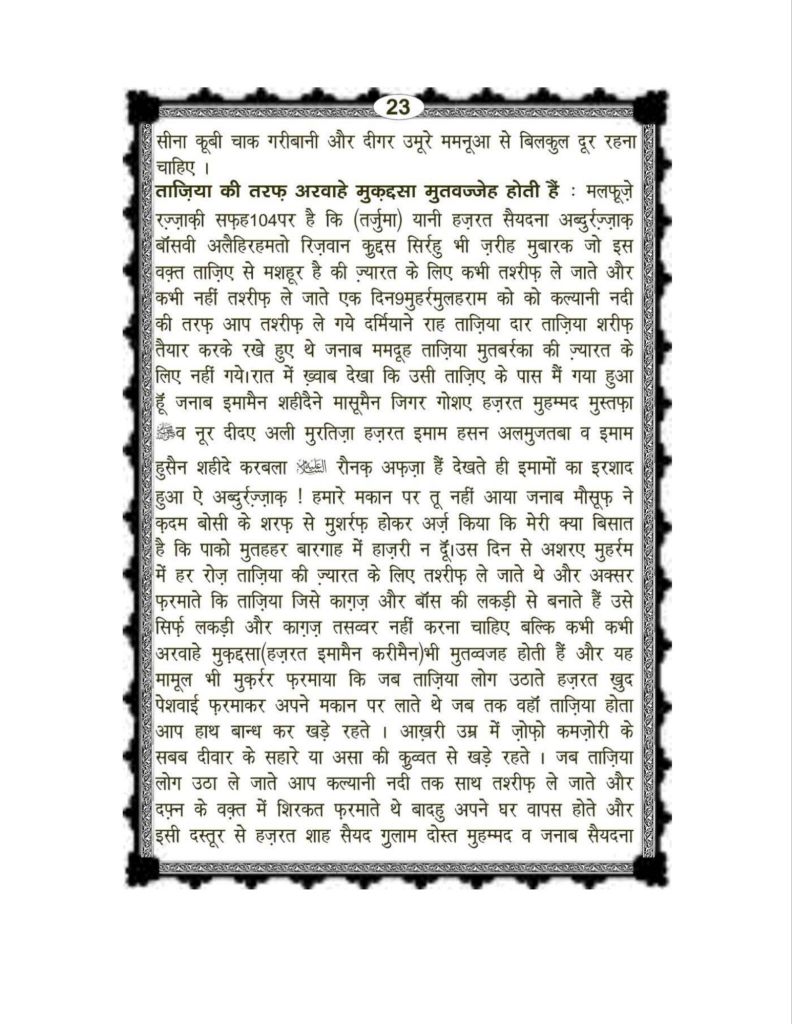 23
सीना कूबी चाक गरीबानी और दीगर उमूरे ममनूआ से बिलकुल दूर रहना
चाहिए ।
ताज़िया की तरफ़ अरवाहे मुक़द्दसा मुतवज्जेह होती हैं : मलफूज़े
रज़्ज़ाक़ी सफ़ह104पर है कि (तर्जुमा) यानी हज़रत सैयदना अब्दुर्रज़्ज़ाक़
बॉसवी अलैहिरहमतो रिज़वान क़ुद्दस सिर्रहु भी ज़रीह मुबारक जो इस
वक़्त ताज़िए से मशहूर है की ज़्यारत के लिए कभी तश्रीफ़ ले जाते और
कभी नहीं तश्रीफ़ ले जाते एक दिन9मुहर्रमुलहराम को को कल्यानी नदी
की तरफ़ आप तश्रीफ़ ले गये दर्मियाने राह ताज़िया दार ताज़िया शरीफ़
तैयार करके रखे हुए थे जनाब ममदूह ताज़िया मुतबर्रका की ज़्यारत के
लिए नहीं गये।रात में ख़्वाब देखा कि उसी ताज़िए के पास मैं गया हुआ
हूॅं जनाब इमामैन शहीदैने मासूमैन जिगर गोशए हज़रत मुहम्मद मुस्तफ़ा
ﷺव नूर दीदए अली मुरतिज़ा हज़रत इमाम हसन अलमुजतबा व इमाम
हुसैन शहीदे करबला رौनक़ अफ़ज़ा हैं देखते ही इमामों का इरशाद
हुआ ऐ अब्दुर्रज़्ज़ाक़ ! हमारे मकान पर तू नहीं आया जनाब मौसूफ़ ने
क़दम बोसी के शरफ़ से मुशर्रफ़ होकर अर्ज़ किया कि मेरी क्या बिसात
है कि पाको मुतहहर बारगाह में हाज़री न दूॅं।उस दिन से अशरए मुहर्रम
में हर रोज़ ताज़िया की ज़्यारत के लिए तश्रीफ़ ले जाते थे और अक्सर
फ़रमाते कि ताज़िया जिसे काग़ज़ और बॉस की लकड़ी से बनाते हैं उसे
सिर्फ़ लकड़ी और काग़ज़ तसव्वर नहीं करना चाहिए बल्कि कभी कभी
अरवाहे मुक़द्दसा(हज़रत इमामैन करीमैन)भी मुतव्वजह होती हैं और यह
मामूल भी मुक़र्रर फ़रमाया कि जब ताज़िया लोग उठाते हज़रत ख़ुद
पेशवाई फ़रमाकर अपने मकान पर लाते थे जब तक वहॉ ताज़िया होता
आप हाथ बान्ध कर खड़े रहते । आख़री उम्र में ज़ोफ़ो कमज़ोरी के
सबब दीवार के सहारे या असा की क़ुव्वत से खड़े रहते । जब ताज़िया
लोग उठा ले जाते आप कल्यानी नदी तक साथ तश्रीफ़ ले जाते और
दफ़्न के वक़्त में शिरकत फ़रमाते थे बादहु अपने घर वापस होते और
इसी दस्तूर से हज़रत शाह सैयद ग़ुलाम दोस्त मुहम्मद व जनाब सैयदना